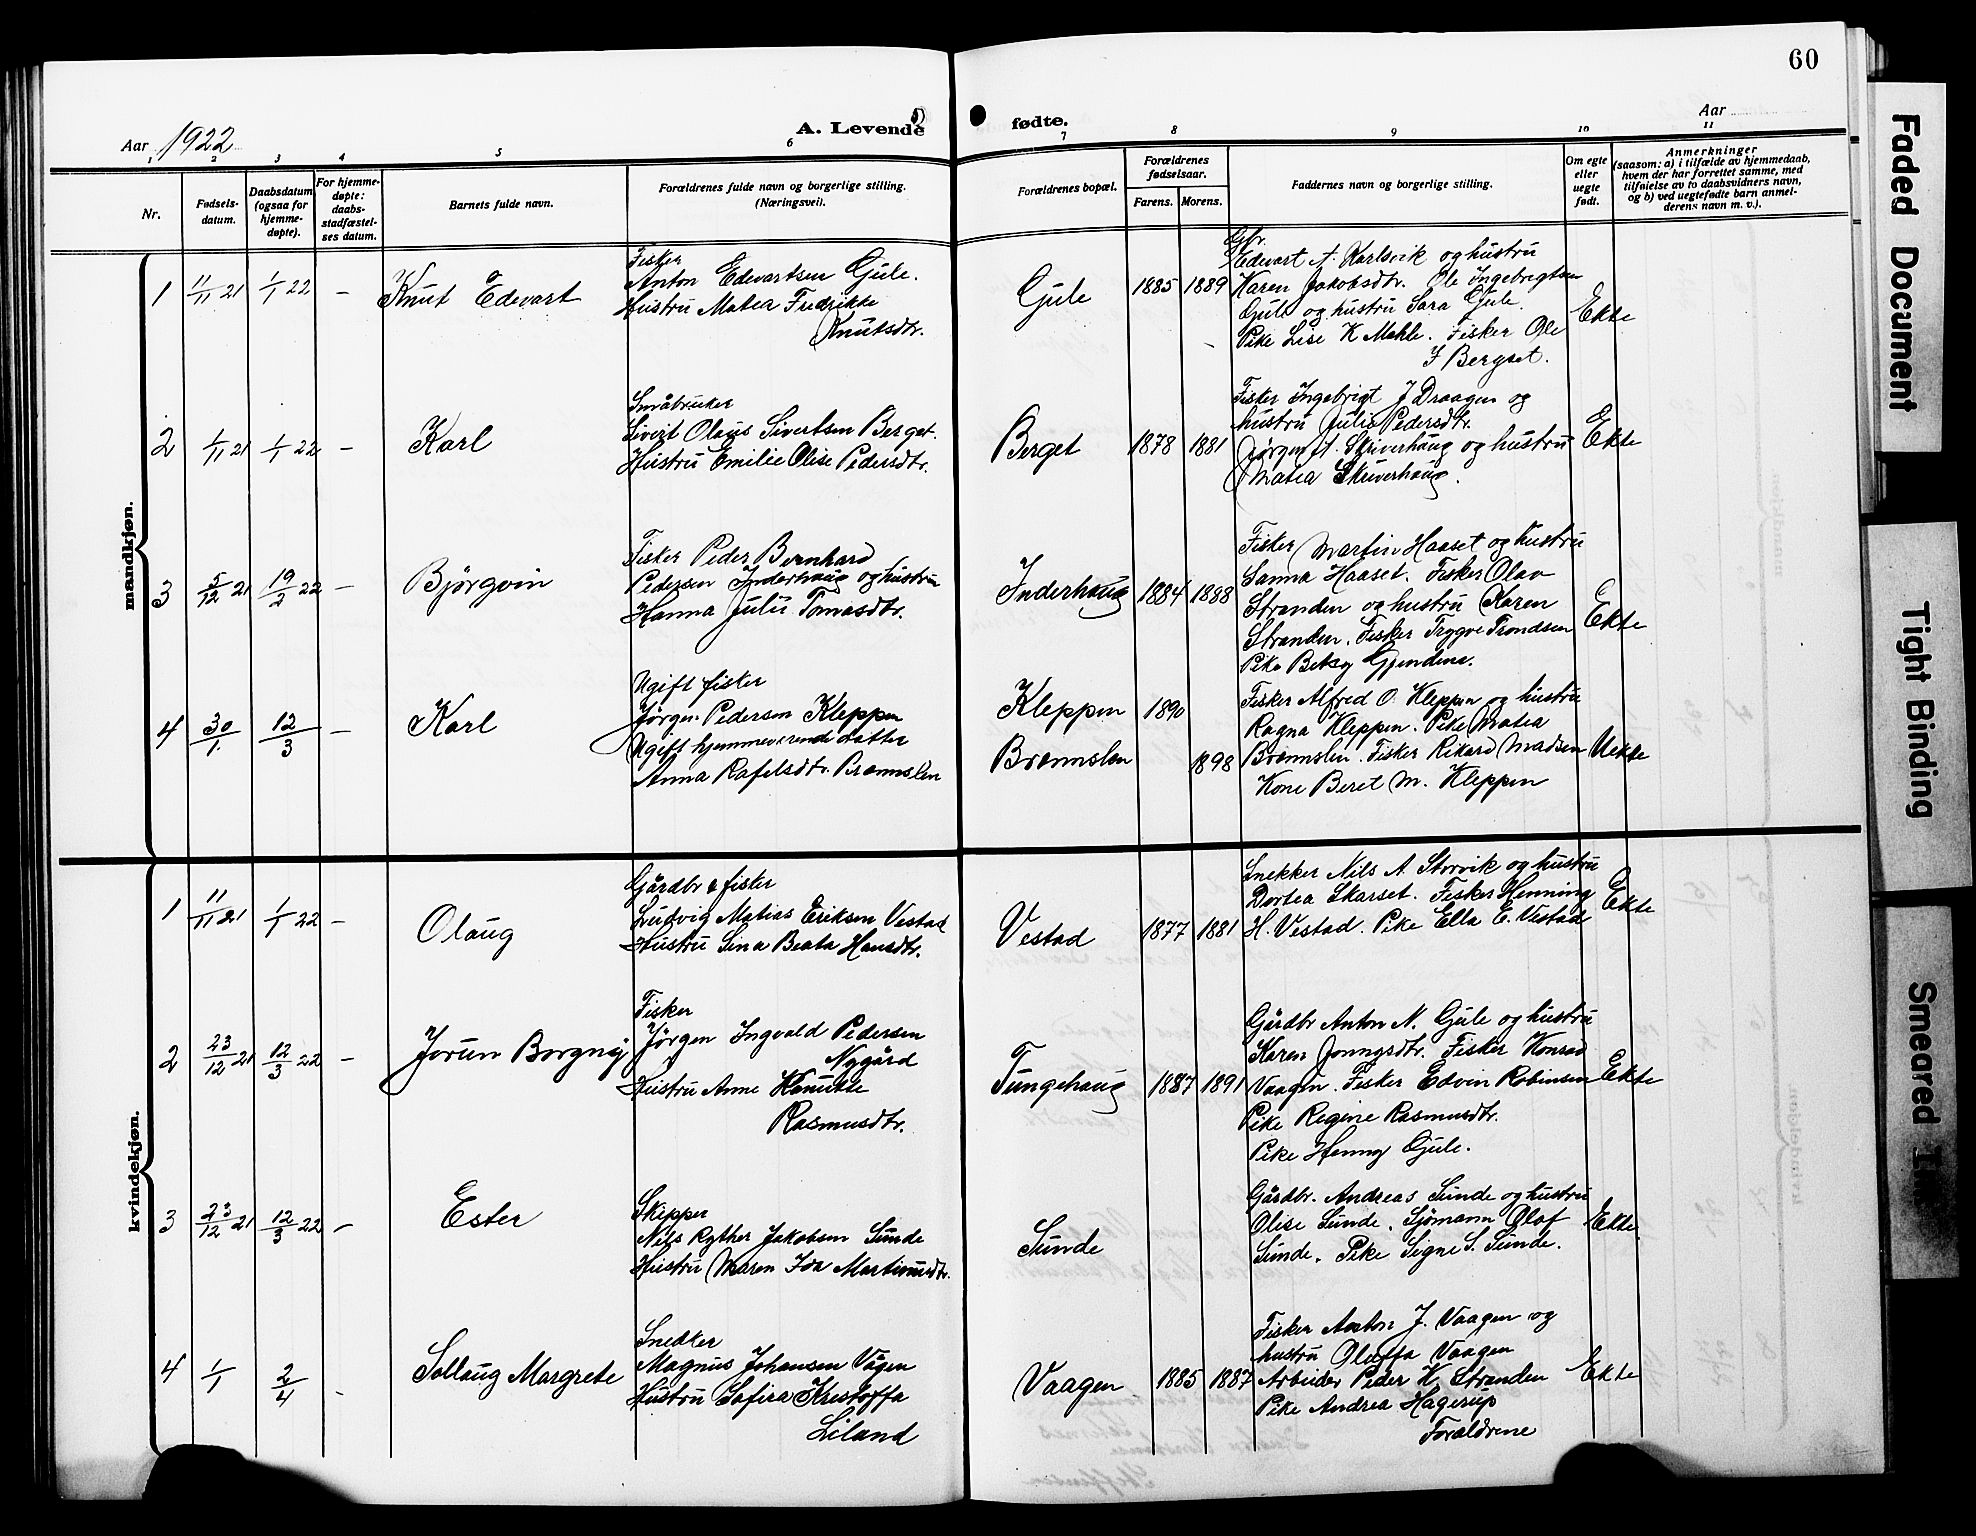 60
Aar 1922
A. Levende fødte.
Aar
1 2 3 4 5 6 7 8 9 10 11
Nr.
Fødsels-
datum.
Daabsdatum
(ogsaa for
hjemme-
døpte).
For hjemme-
døpte:
daabs-
stadfæstel-
ses datum.
Barnets fulde navn.
Forældrenes fulde navn og borgerlige stilling.
(Næringsvei).
Forældrenes bopæl.
Forældrenes
fødselsaar.
Farens. Morens.
Faddernes navn og borgerlige stilling.
Om egte
eller
uegte
født.
Anmerkninger
(saasom: a) i tilfælde av hjemmedaab,
hvem der har forrettet samme, med
tilføielse av to daabsvidners navn,
og b) ved uegtefødte barn anmel-
derens navn m. v.).
mandkjøn.
1 11/11 21 1/1 22 – Knut Edevart
Fisker
Anton Edevartsen Gule.
Hustru Matea Fredrikke
Knutsdtr.
Gule 1885 1889
Gbr.
Edevart A. Karlsvik og hustru
Karen Jakobsdtr. Ole Ingebrigtsen
Gule og hustru Sara Gule.
Pike Lise K Mahle. Fisker Ole
I Bergset.
Ekte
2 1/11 21 1/1 22 – Karl
Småbruker
Sivert Olaus Sivertsen Berget.
Hustru Emilie Olise Pedersdtr.
Berget 1878 1881
Fisker Ingebrigt J Draagen og
hustru Julie Pedersdtr.
Jørgen A. Skriverhaug og hustru
Matea Skriverhaug.
Ekte
3 5/12 21 19/2 22 – Bjørgvin
Fisker Peder Bernhard
Pedersen Inderhaug og hustru
Hanna Julie Tomasdtr.
Inderhaug 1884 1888
Fisker Martin Haaset og hustru
Sanna Haaset. Fisker Olav
Stranden og hustru Karen
Stranden. Fisker Trygve Trondsen
Pike Betsy Gjendene.
Ekte
4 30/1. 12/3 – Karl
Ugift fisker
Jørgen Pedersen Kleppen
Ugift hjemmeværende datter
Anna Rafelsdtr. Bremslen
Kleppen 1890
Bremslen 1898
Fisker Alfred O. Kleppen og hustru
Ragna Kleppen. Pike Matea
Bremslen. Fisker Rikard Madsen
Kone Beret M. Kleppen
Uekte
kvindekjøn.
1 11/11 21 1/1 22 – Olaug
Gårdbr & fisker
Ludvig Matias Eriksen Vestad
Hustru Lina Beata Hansdtr.
Vestad 1877 1881
Snekker Nils A Storvik og hustru
Dortea Skarset. Fisker Henning
H. Vestad. Pike Ella E. Vestad
Ekte
2 23/12 21 12/3 22 – Jorun Borgny
Fisker
Jørgen Ingvald Pedersen
Nygård
Hustru Anne
Rasmusdtr.
Tungehaug 1887 1891
Gårdbr Anton N. Gule og hustru
Karen Fisker Konrad
Vaagen. Fisker Edvin Robinsen
Pike Regine Rasmusdtr.
Pike Henny Gule.
Ekte
3 23/12 21 12/3 22 – Ester
Skipper
Nils Ryther Jakobsen Sunde
Hustru Maren Ida Martinusdtr.
Sunde
Gårdbr. Andreas Sunde og hustru
Olise Sunde. Sjømann Olaf
Sunde. Pike Signe S. Sunde.
Ekte
4 1/1 2/4 - Sollaug Margrete
Snedker
Magnus Johansen Vågen
Hustru Sofira Kristoffa
Liland
Vaagen 1885 1887
Fisker Anton J. Vaagen og
hustru Oluffa Vaagen
Arbeider Peder K. Stranden
Pike Andrea Hagerup
Forældrene
Ekte
Faded Document
Tight Binding
Smeared Ink